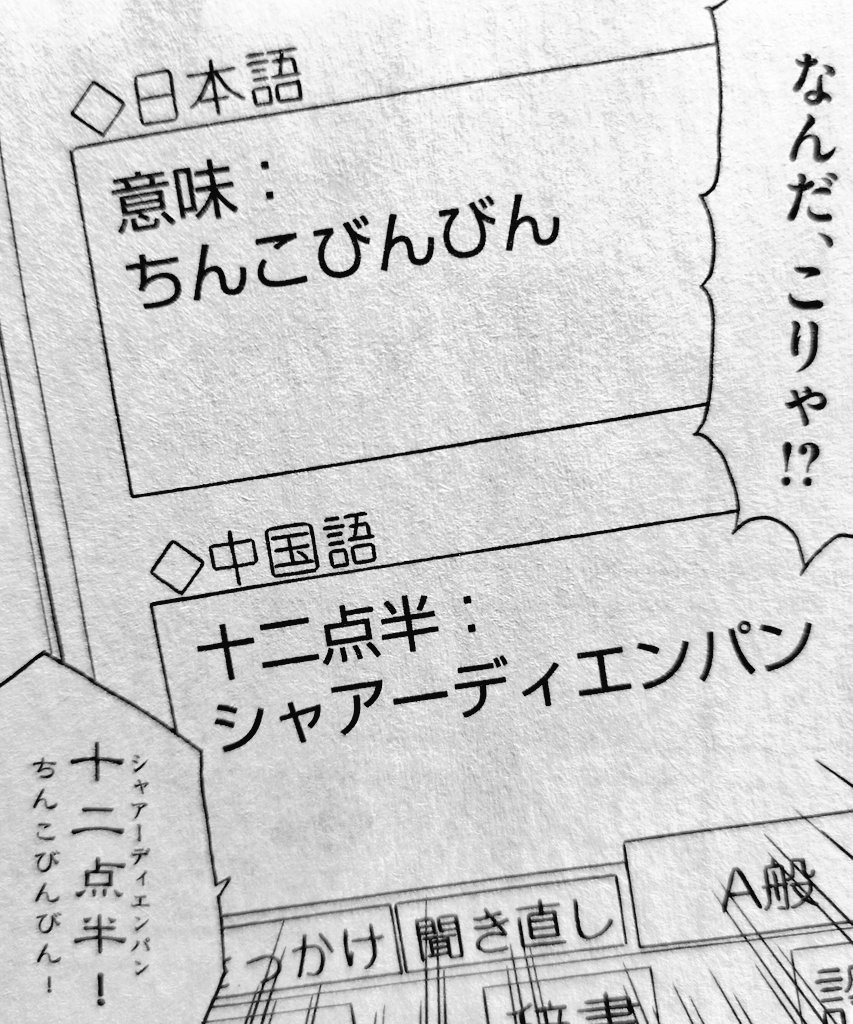 なんだ、こりゃ!?
◇日本語
意味：
ちんこびんびん
◇中国語
十二点半：
シャアーディエンパン
A般
っかけ
聞き直し
辞書
シャアーディエンパン
十二点半！
ちんこびんびん！